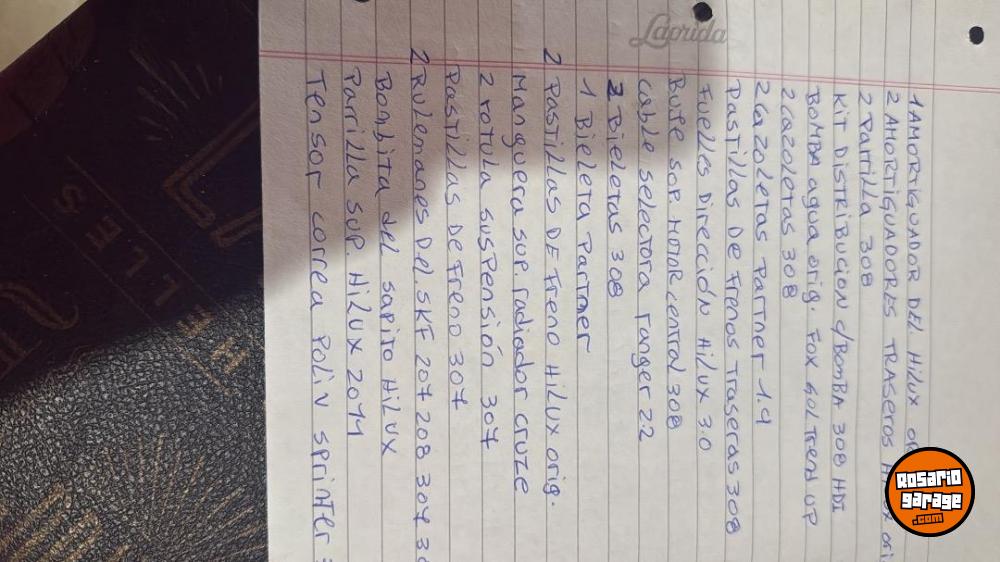 Laprida
1 AMORTIGUADOR DEL HILUX
2 AMORTIGUADORES TRASEROS
2 Parrilla 308
Kit Distribucion c/BomBA 308 HDI
BOMBA agua orig. Fox Gol Trend UP
2 cazoletas 308
2 cazoletas Partner 1.4
Pastillas De Frenos Traseras 308
Fuelles Dirección Hilux 3.0
Buje sop. Motor central 308
cable selectora ranger 2.2
2 Bieletas 308
1 Bieleta Partner
2 Pastillas DE Freno Hilux orig.
Manguera sup. radiador cruze
2 rotula suspensión 307
Pastillas De Freno 307
2 Rulemanes Del. SKF 207 208 307
Bombita del sapito Hilux
Parrilla sup. Hilux 2011
Tensor correa Poliv sprinter
LLES
Rosario
garage
.com